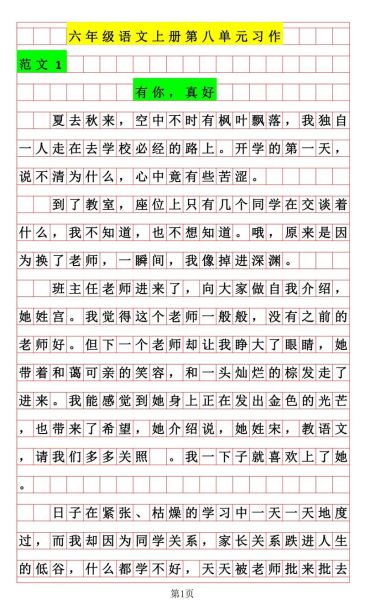 六年级语文上册第八单元习作
范文1
有你，真好
夏去秋来，空中不时有枫叶飘落，我独自
一人走在去学校必经的路上。开学的第一天，
说不清为什么，心中竟有些苦涩。
到了教室，座位上只有几个同学在交谈着
什么，我不知道，也不想知道。哦，原来是因
为换了老师，一瞬间，我像掉进深渊。
班主任老师进来了，向大家做自我介绍，
她姓宫。我觉得这个老师一般般，没有之前的
老师好。但下一个老师却让我睁大了眼睛，她
带着和蔼可亲的笑容，和一头灿烂的棕发走了
进来。我能感觉到她身上正在发出金色的光芒
，也带来了希望，她介绍说，她姓宋，教语文
，请我们多多关照 。我一下子就喜欢上了她
。
日子在紧张、枯燥的学习中一天一天地度
过，而我却因为同学关系，家长关系跌进人生
的低谷，什么都学不好，天天被老师批来批去
第1页